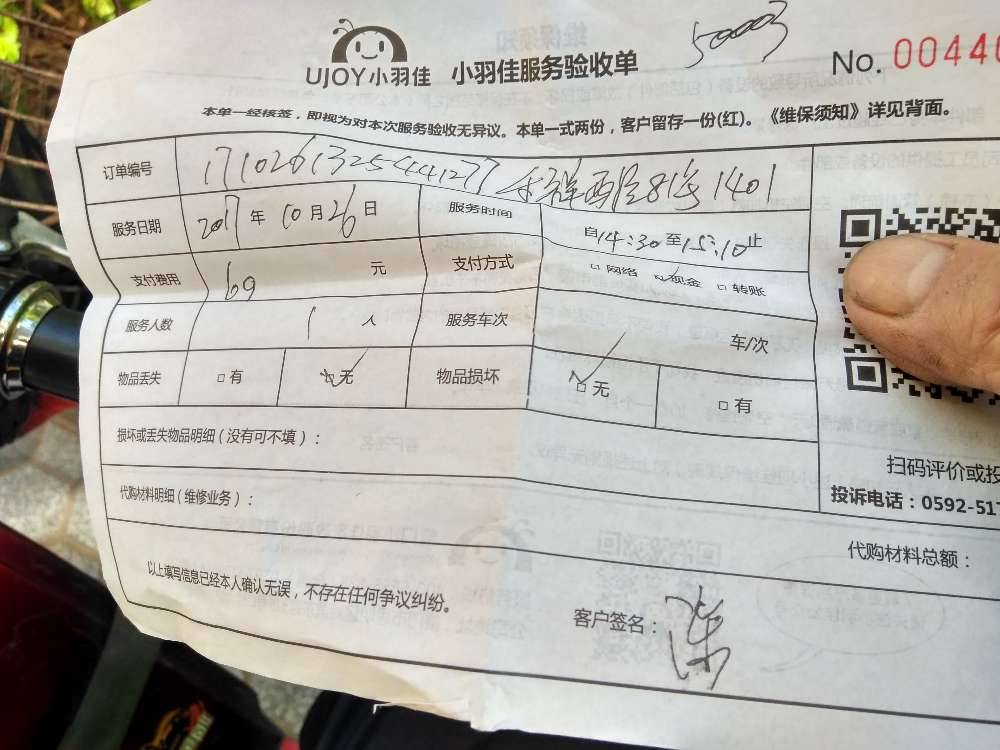 50003
UJOY小羽佳 小羽佳服务验收单 No. 00446
本单一经核签，即视为对本次服务验收无异议。本单一式两份，客户留存一份(红)。《维保须知》详见背面。
订单编号 17102613254441277 81号1401
服务日期 2017年10月26日 服务时间 自14:30至15:10止
支付费用 69 元 支付方式 □网络 ☑现金 □转账
服务人数 1 人 服务车次 车/次
物品丢失 □有 ☑无 物品损坏 ☑无 □有
损坏或丢失物品明细（没有可不填）：
代购材料明细（维修业务）：
扫码评价或投
投诉电话：0592-517
代购材料总额：
以上填写信息已经本人确认无误，不存在任何争议纠纷。
客户签名：